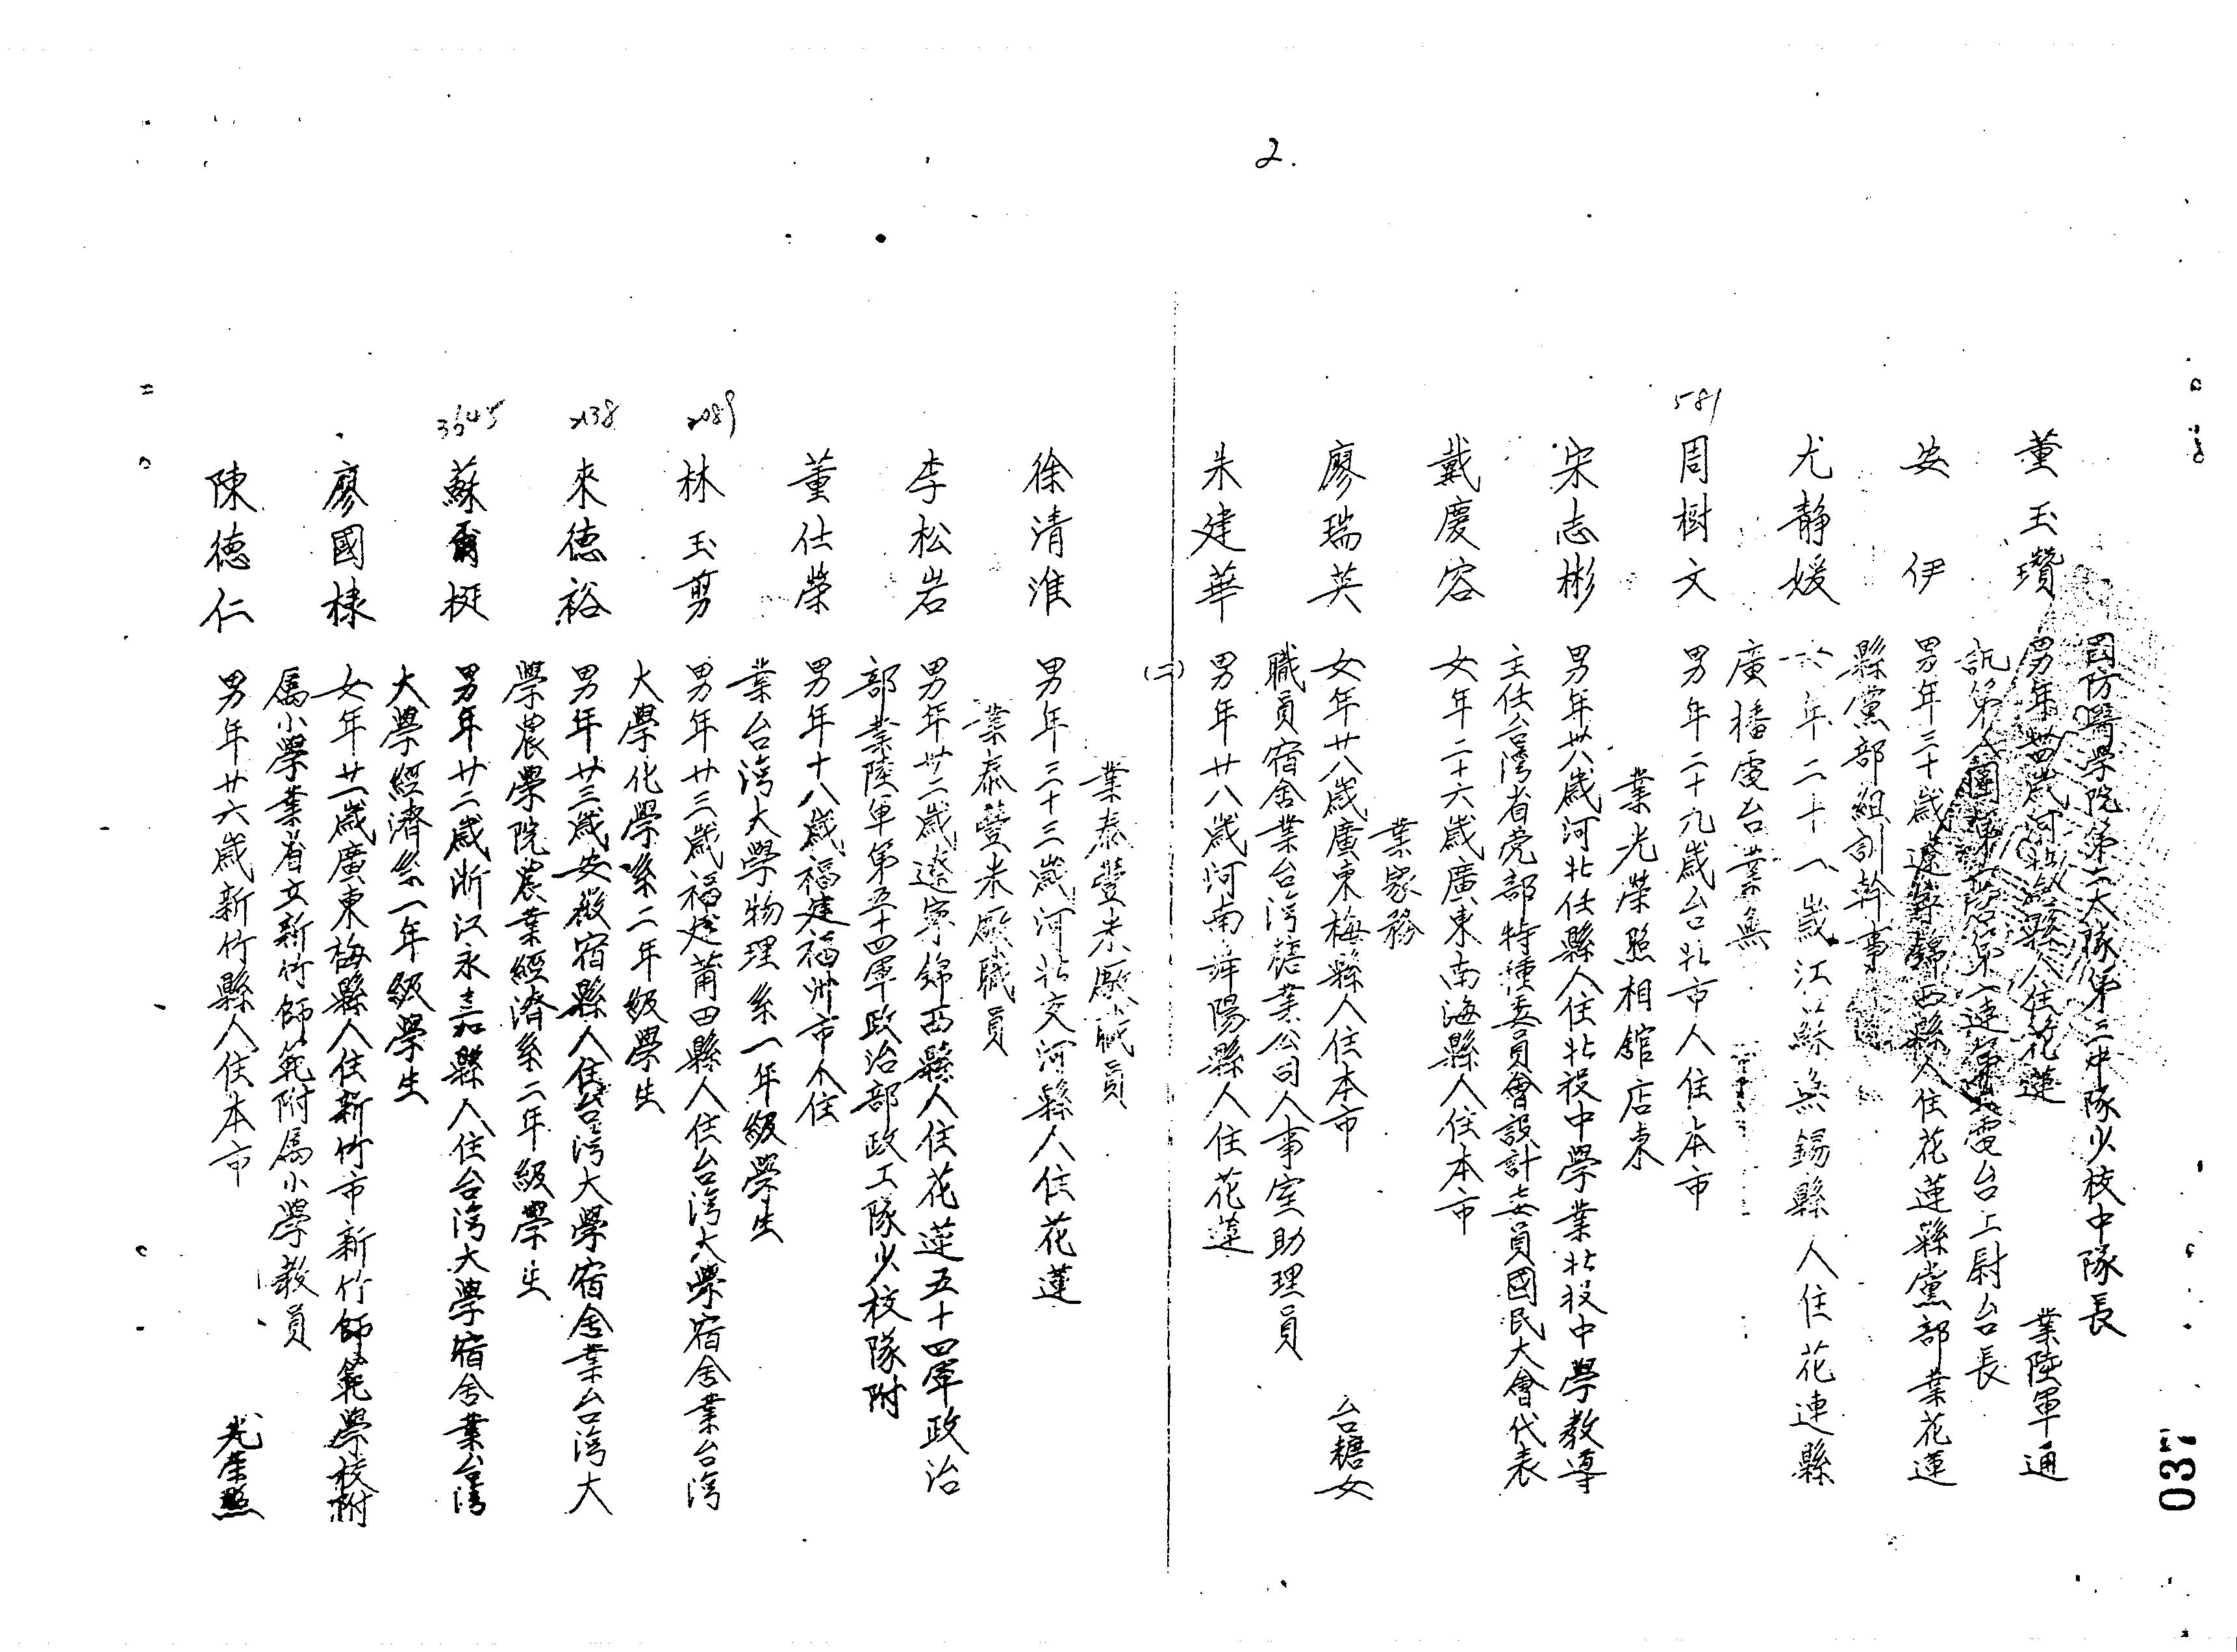 2.
國防醫學院第二大隊第三中隊少校中隊長
董玉瓚 男年卅四歲河北 縣人住花蓮 業陸軍通
訊第 團 第 連 電台上尉台長
安伊 男年三十歲遼寧錦西縣人住花蓮縣黨部業花蓮
縣黨部組訓幹事
尤靜媛 女年二十八歲江蘇無錫縣人住花連縣
廣播電台業無
581
周樹文 男年二十九歲台北市人住本市
業光榮照相舘店東
宋志彬 男年卅六歲河北任縣人住北投中學業北投中學教導
主任台灣省党部特種委員會設計委員國民大會代表
戴慶容 女年二十六歲廣東南海縣人住本市
業家務
廖瑞英 女年廿八歲廣東梅縣人住本市 台糖女
職員宿舍業台灣糖業公司人事室助理員
朱建華 男年廿八歲河南 陽縣人住花蓮
(二)
業泰豐米廠職員
徐清淮 男年三十三歲河北交河縣人住花蓮
業泰豐米廠職員
李松岩 男年卅二歲遼寧錦西縣人住花蓮五十四軍政治
部業陸軍第五十四軍政治部政工隊少校隊附
董仕榮 男年十八歲福建福州市人住
業台灣大學物理系一年級學生
2089
林玉剪 男年廿三歲福建莆田縣人住台灣大學宿舍業台灣
大學化學系二年級學生
2138
來德裕 男年廿三歲安徽宿縣人住台灣大學宿舍業台灣大
學農學院農業經濟系二年級學生
3645
蘇爾挺 男年廿二歲浙江永嘉縣人住台灣大學宿舍業台灣
大學經濟系一年級學生
廖國棣 女年廿一歲廣東梅縣人住新竹市新竹師範學校附
屬小學業省立新竹師範附屬小學教員
陳德仁 男年廿六歲新竹縣人住本市 光榮照
037